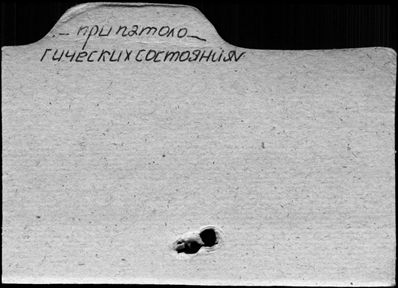 — при патоло —
гических состояниях